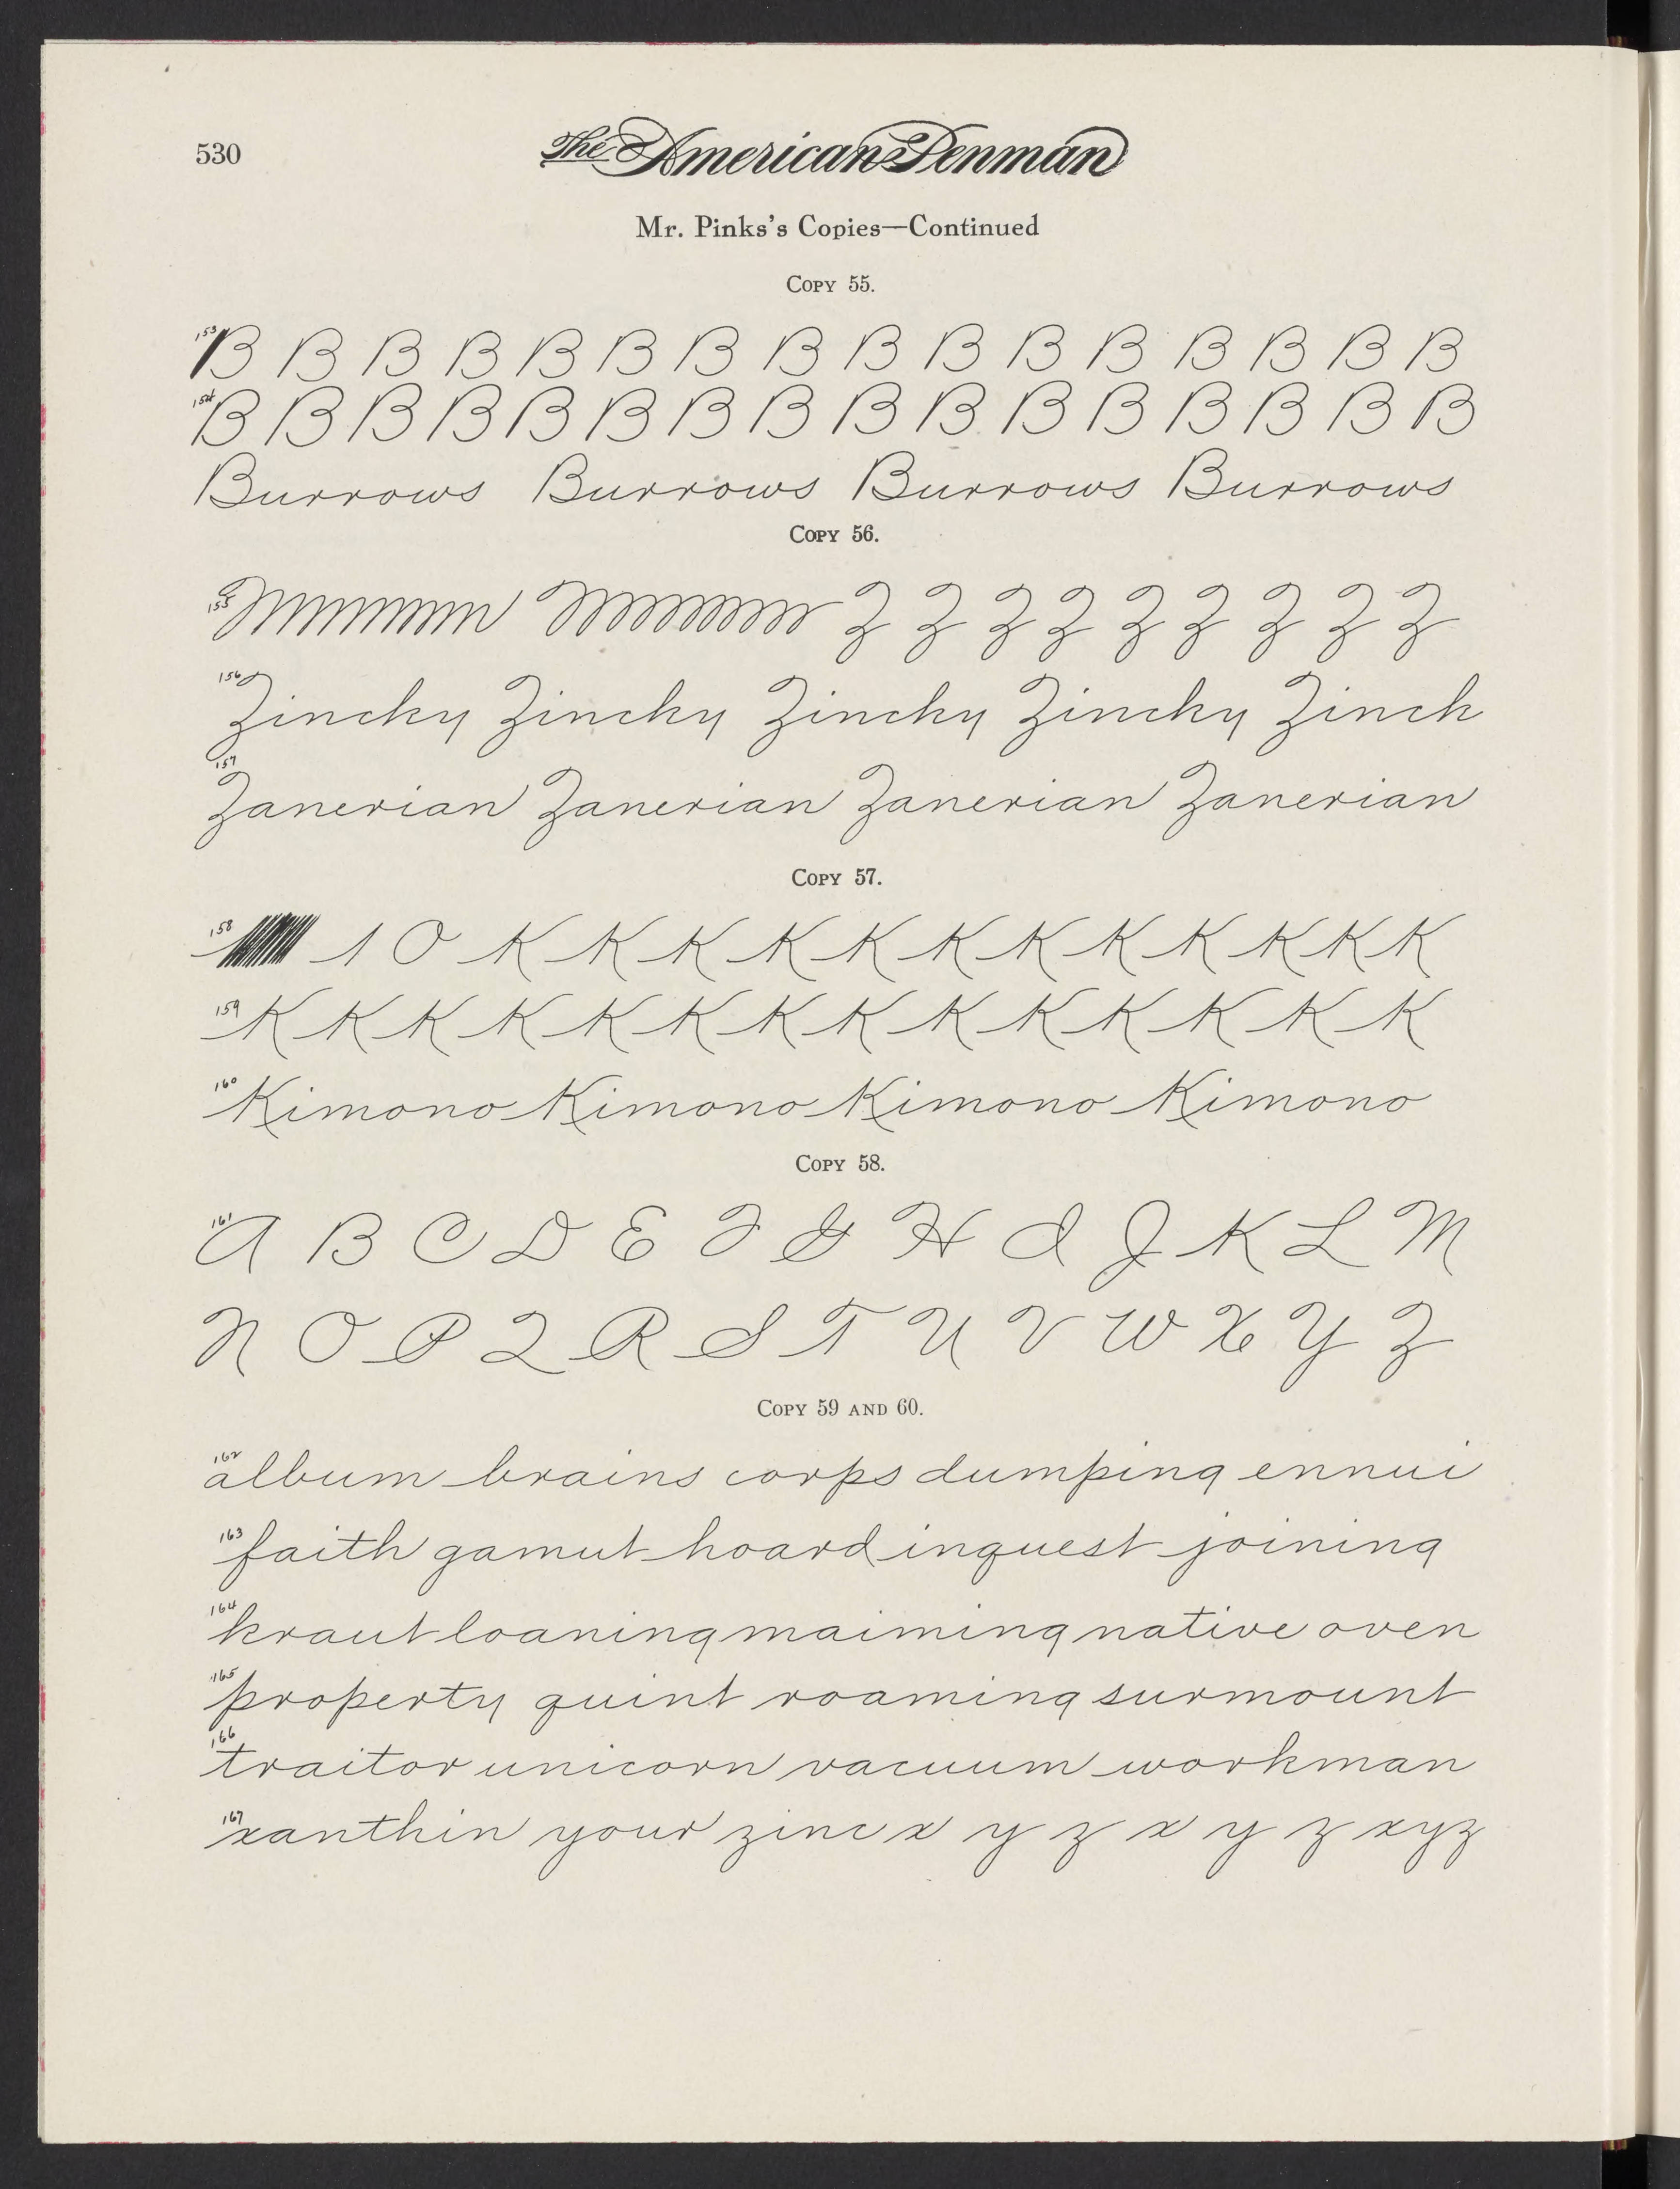 530
The American Penman
Mr. Pinks's Copies—Continued
Copy 55.
153 B B B B B B B B B B B B B B B B
154 B B B B B B B B B B B B B B B B
Burrows Burrows Burrows Burrows
Copy 56.
155 Z Z Z Z Z Z Z Z Z
156 Zincky Zincky Zincky Zincky Zinck
157
Zanerian Zanerian Zanerian Zanerian
Copy 57.
158 1 O K K K K K K K K K K K K
159 K K K K K K K K K K K K K K
160 Kimono Kimono Kimono Kimono
Copy 58.
161 A B C D E F G H I J K L M
N O P Q R S T U V W X Y Z
Copy 59 and 60.
162 album brains corps dumping ennui
163 faith gamut hoard inquest joining
164 kraut loaning maiming native oven
165 property quint roaming surmount
166 traitor unicorn vacuum workman
167 xanthin your zinc x y z x y z xyz